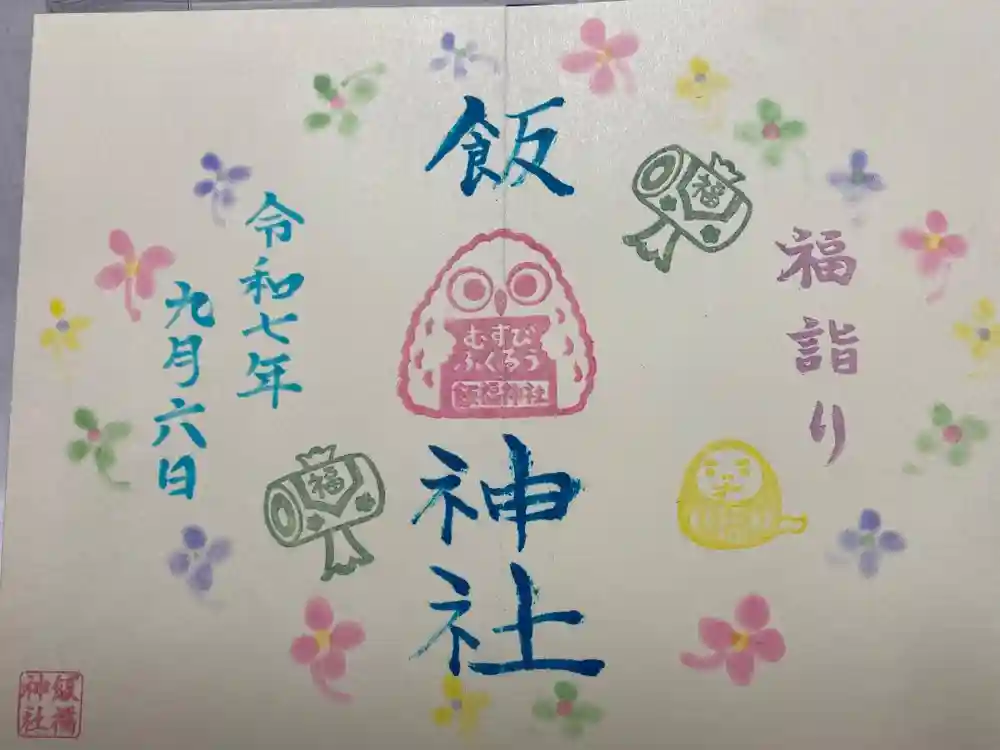 福詣り
飯
むすび
ふくろう
飯福神社
神社
令和七年
九月六日
福
福
飯福
神社